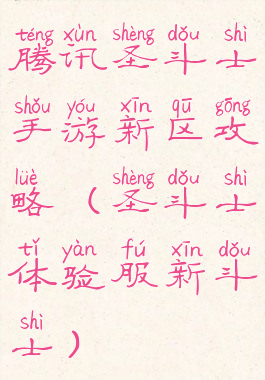 téng xùn shèng dǒu shì
腾讯圣斗士
shǒu yóu xīn qū gōng
手游新区攻
lüè shèng dǒu shì
略（圣斗士
tǐ yàn fú xīn dǒu
体验服新斗
shì
士）